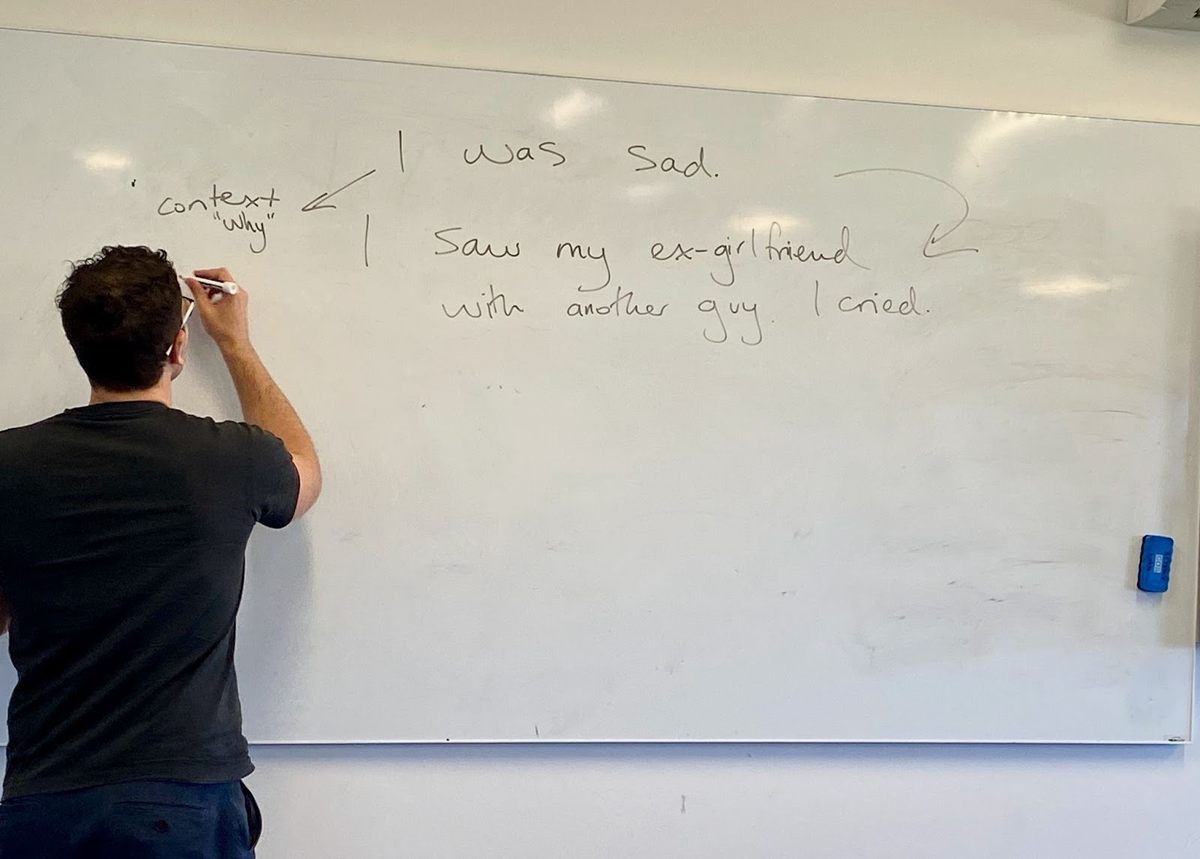 I was sad.
context
"why"
I saw my ex-girlfriend
with another guy. I cried.